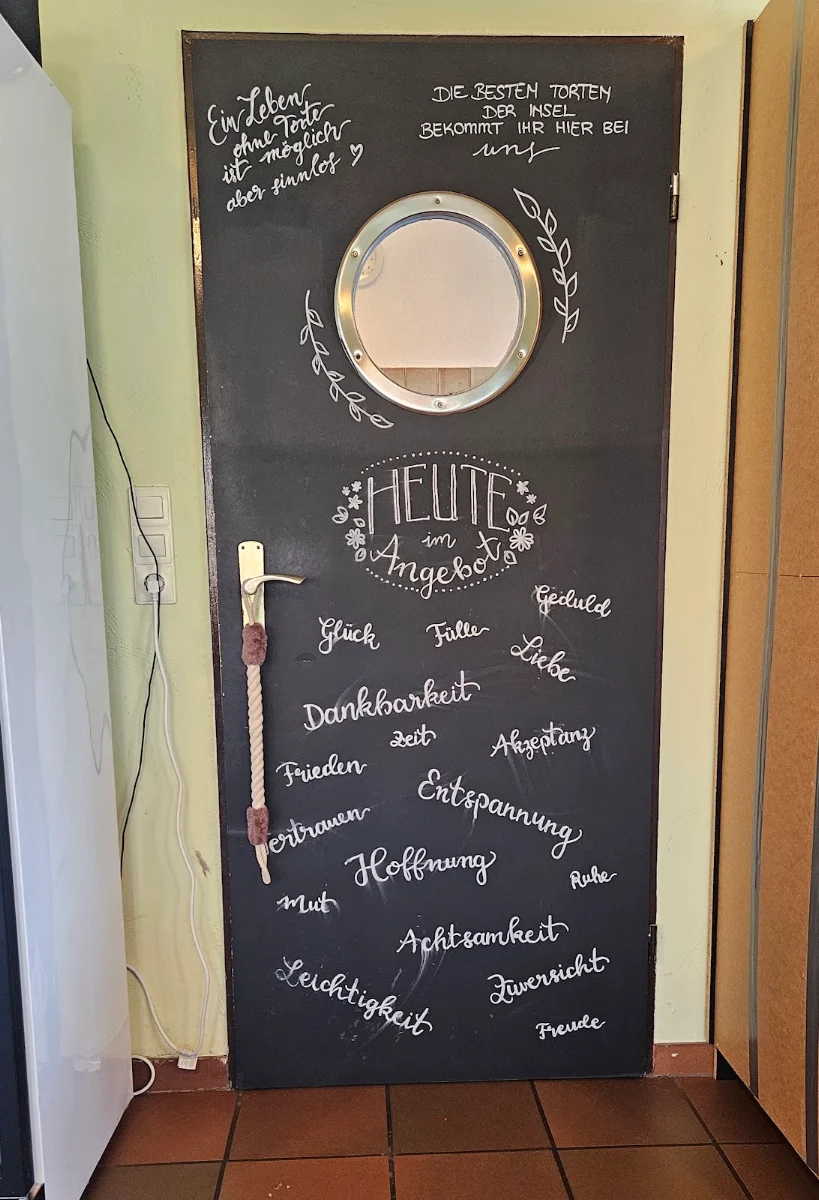 Ein Leben
ohne Torte
ist möglich
aber sinnlos
DIE BESTEN TORTEN
DER INSEL
BEKOMMT IHR HIER BEI
uns
HEUTE
im
Angebot
Geduld
Glück
Fülle
Liebe
Dankbarkeit
Zeit
Akzeptanz
Frieden
Entspannung
ertrauen
Hoffnung
Ruhe
Mut
Achtsamkeit
Leichtigkeit
Zuversicht
Freude